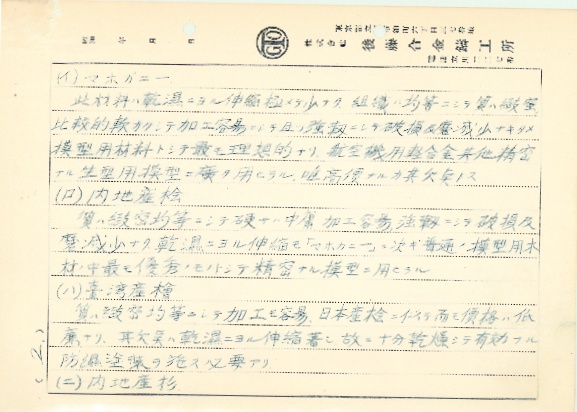 株式会社 後藤合金鋳工所
昭和 年 月 日
(イ)マホガニー
此材料ハ乾湿ニヨル伸縮極メテ少ナク、組織ハ均等ニシテ質ハ緻密
比較的軟カクシテ加工容易ニシテ且ツ強靱ニシテ破損及磨減少ナキタメ
模型用材料トシテ最モ理想的ナリ、航空機用軽合金其他精密
ナル生型用模型ニ廣ク用ヒラル、唯高價ナルガ其欠臭ナリ
(ロ)内地産桧
質ハ緻密均等ニシテ硬サハ中庸 加工容易強靱ニシテ破損及
磨減少ナク 乾湿ニヨル伸縮モ「マホガニー」ニ次ギ普通ノ模型用木
材ノ中最モ優秀ノモノニシテ精密ナル模型ニ用ヒラル
(ハ)臺湾産檜
質ハ緻密均等ニシテ加工モ容易、日本産桧ニ似テ而モ價格ハ低
廉ナリ、其欠臭ハ乾湿ニヨル伸縮著シ故ニ十分乾燥シテ有効ナル
防湿塗装ヲ施ス必要アリ
(ニ)内地産杉
(2.)